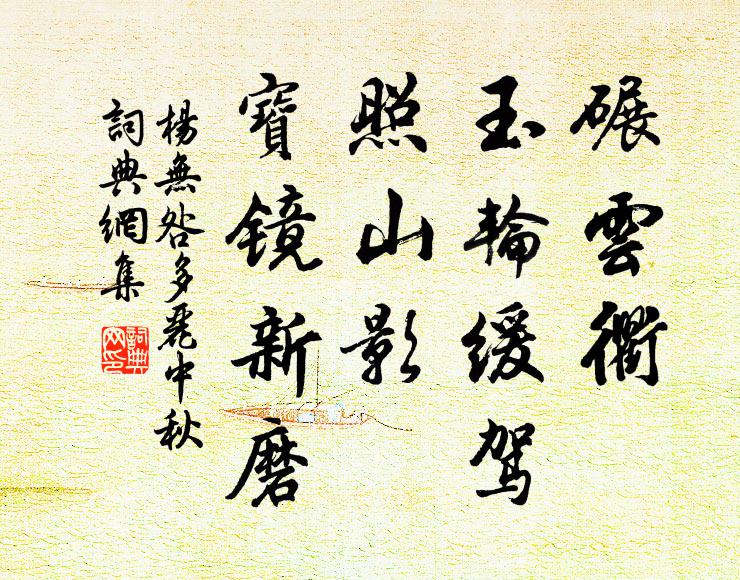 碾雲衢
玉輪緩駕
照山影
寶鏡新磨
楊無咎多麗中秋
詞典網集
詞典網印